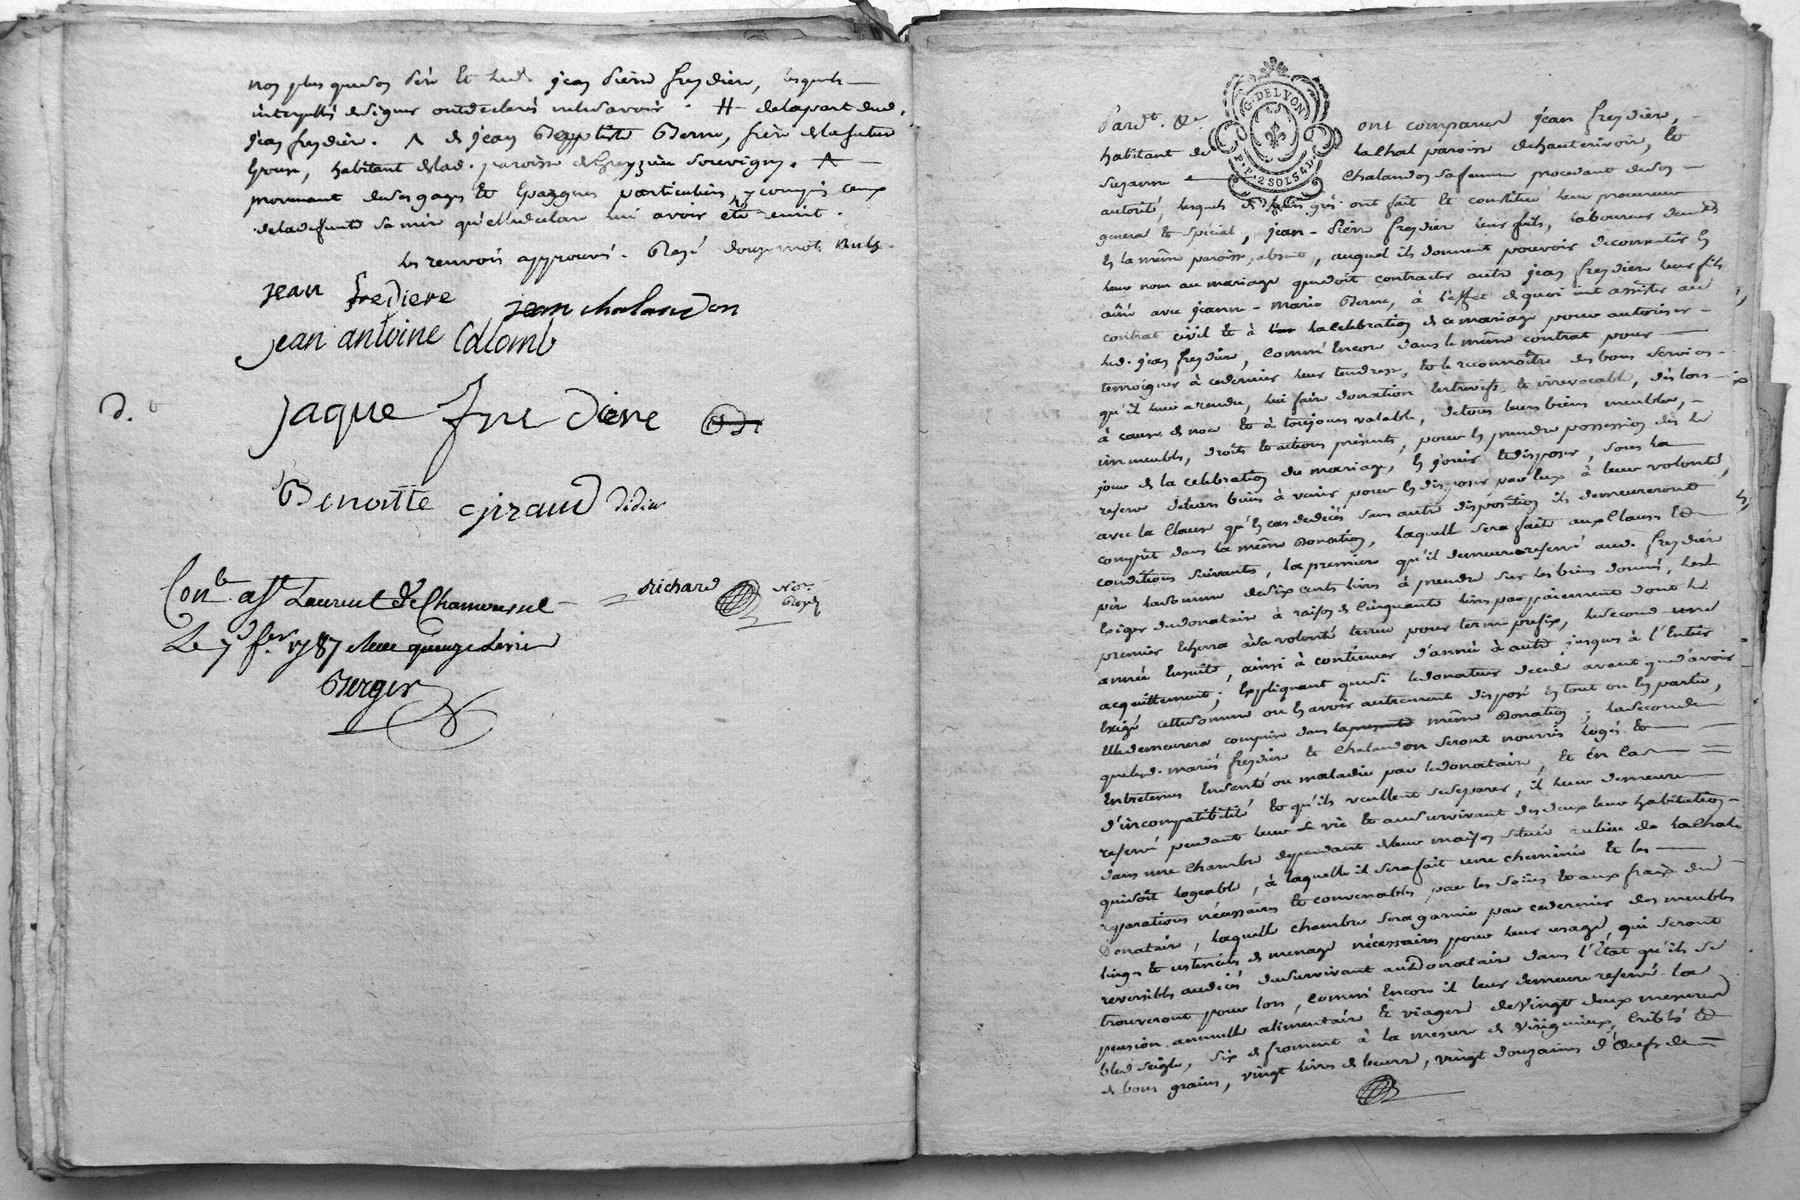 non plus que son père et led. jean pierre freydiere, lesquels
interpellés de signer ont declarés ne le savoir. # de la part dud.
jean freydière. A de jean Baptiste Berne, frère de la future
Epouse, habitant de lad. paroisse de Grezieu Souvigny. A
provenant de ses gages et Epargnes particuliers, y compris ceux
de la defunte sa mère qu'elle declare lui avoir été remit.
les renvois approuvés. Rayé douze mots nuls.
jean frediere jean chalandon
jean antoine Colomb
d.
jaque fre diere
Benoitte giraud didier
Con.le a St Laurent de Chamousset Richard No.re Royal
Le 7 f.er 1787 Recu quinze Livres
Berger
G. DE LYON
P. P. 2 SOLS 4 D.
Pard.t &c. ont comparu jean freydière,
habitant de lachal paroisse de hauterivoir, et
Suzanne Chalandon sa femme procedant de son
autorité, lesquels de gré ont fait et constitué leur procureur
general et special, jean-pierre freydier leur fils, laboureur dem.t
en la même paroisse, absent, auquel ils donnent pouvoir de consentir en
leur nom au mariage que doit contracter autre jean freydiere leur fils
ainé avec jeanne-marie Berne, à l'effet de quoi il assistera au
contrat civil et à la celebration de ce mariage pour autoriser
led. jean freydière, comme Encore dans le même contrat pour
temoigner à ce dernier leur tendresse, et le reconnoître des bons services
qu'il leur a rendu, lui faire donation Entrevifs et irrevocable, dès lors
à cause de noce et à toujours valable, de tous leurs biens meubles,
immeubles, droits et actions présents, pour en prendre possession dès le
jour de la celebration du mariage, en jouir et disposer, sous la
reserve de leurs biens à venir pour en disposer par Eux à leur volonté,
avec la Clause qu'En cas de decès sans autre disposition ils demeureront
compris dans la même Donation, laquelle sera faite aux Clauses et
conditions suivantes, la premiere qu'il demeurera reservé aud. freydière
père la somme de six cents livres à prendre sur les biens donnés, et
Exiger du donataire à raison de Cinquante livres par paiement dont le
premier Echerra à sa volonté tenue pour terme prefix, le second une
année Ensuite, ainsi à continuer d'année à autre jusques à l'Entier
acquittement; Expliquant que si le donateur decede avant que d'avoir
Exigé cette somme ou En avoir autrement disposé En tout ou En partie,
Elle demeurera comprise dans la même Donation; la seconde
que lesd. mariés freydière et Chalandon seront nourris logés et
Entretenus En santé ou maladie par le donataire, et En cas
d'incompatibilité et qu'ils veuillent se separer, il leur demeurera
reservé pendant leur vie et au survivant des deux leur habitation
dans une chambre dependant de leur maison située au lieu de la Chal
qui soit logeable, à laquelle il sera fait une cheminée et les
reparations nécessaires et convenables par les soins et aux fraix du
Donataire, laquelle chambre sera garnie par ce dernier des meubles
linges et ustenciles de menage nécessaires pour leur usage, qui seront
reversibles au decès du survivant au Donataire dans l'Etat qu'ils se
trouveront pour lors, comme Encore il leur demeurera reservé la
pension annuelle alimentaire et viagere de vingt deux mesures
bled seigle, six de froment à la mesure de Viricgneux, criblés et
de bons grains, vingt livres de beurre, vingt douzaines d'œufs de